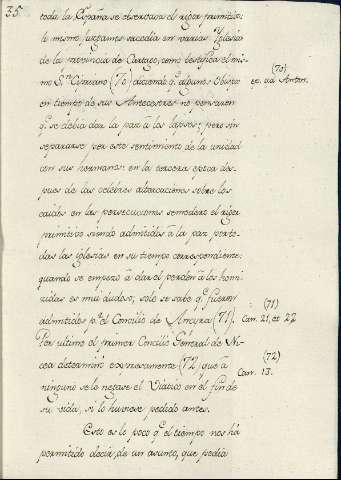 35
toda la España se observava el rigor primitivo:
lo mismo juzgamos sucedia en varias Yglesias
de la provincia de Cartago, como testifica el mis-
mo Sn. Cipriano (70) diciendo q.e algunos Obispos
(70)
ep. ad Anton.
en tiempo de sus Antecesores no pensaron
q.e se debia dar la paz à los lapsos; pero sin
separarse por este sentimiento de la unidad
con sus hermanos: en la tercera epoca des-
pues de las célebres altercaciones sobre los
caidos en las persecuciones se modero el rigor
primitivo siendo admitidos à la paz por to-
das las iglesias en su tiempo correspondiente:
quando se empezó à dar el perdon à los homi-
cidas es mui dudoso; solo se sabe q.e fueron
admitidos p.r el Concilio de Ancyra (71).
(71)
Can. 21, et 22
Por ultimo el primer Concilio General de Ni-
cea determinó expresamente (72) que à
(72)
Can. 13.
ninguno se le negase el Viatico en el fin de
su vida, si lo huviese pedido antes.
Esto es lo poco q.e el tiempo nos há
permitido decir, de un asunto, que pedia